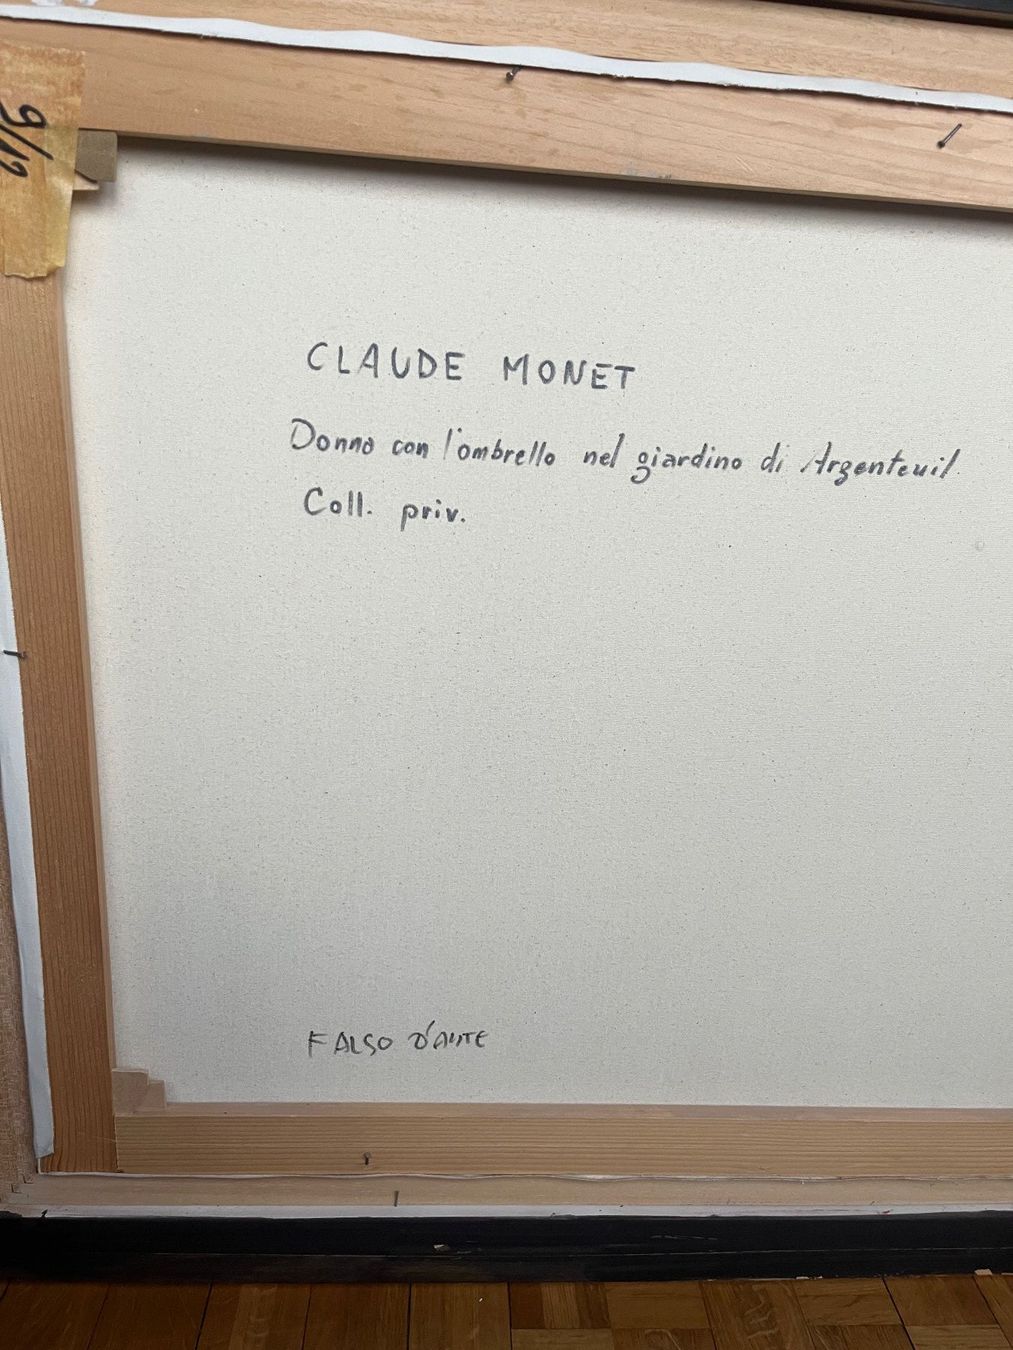 9/12
CLAUDE MONET
Donna con l'ombrello nel giardino di Argenteuil
Coll. priv.
FALSO D'AUTE